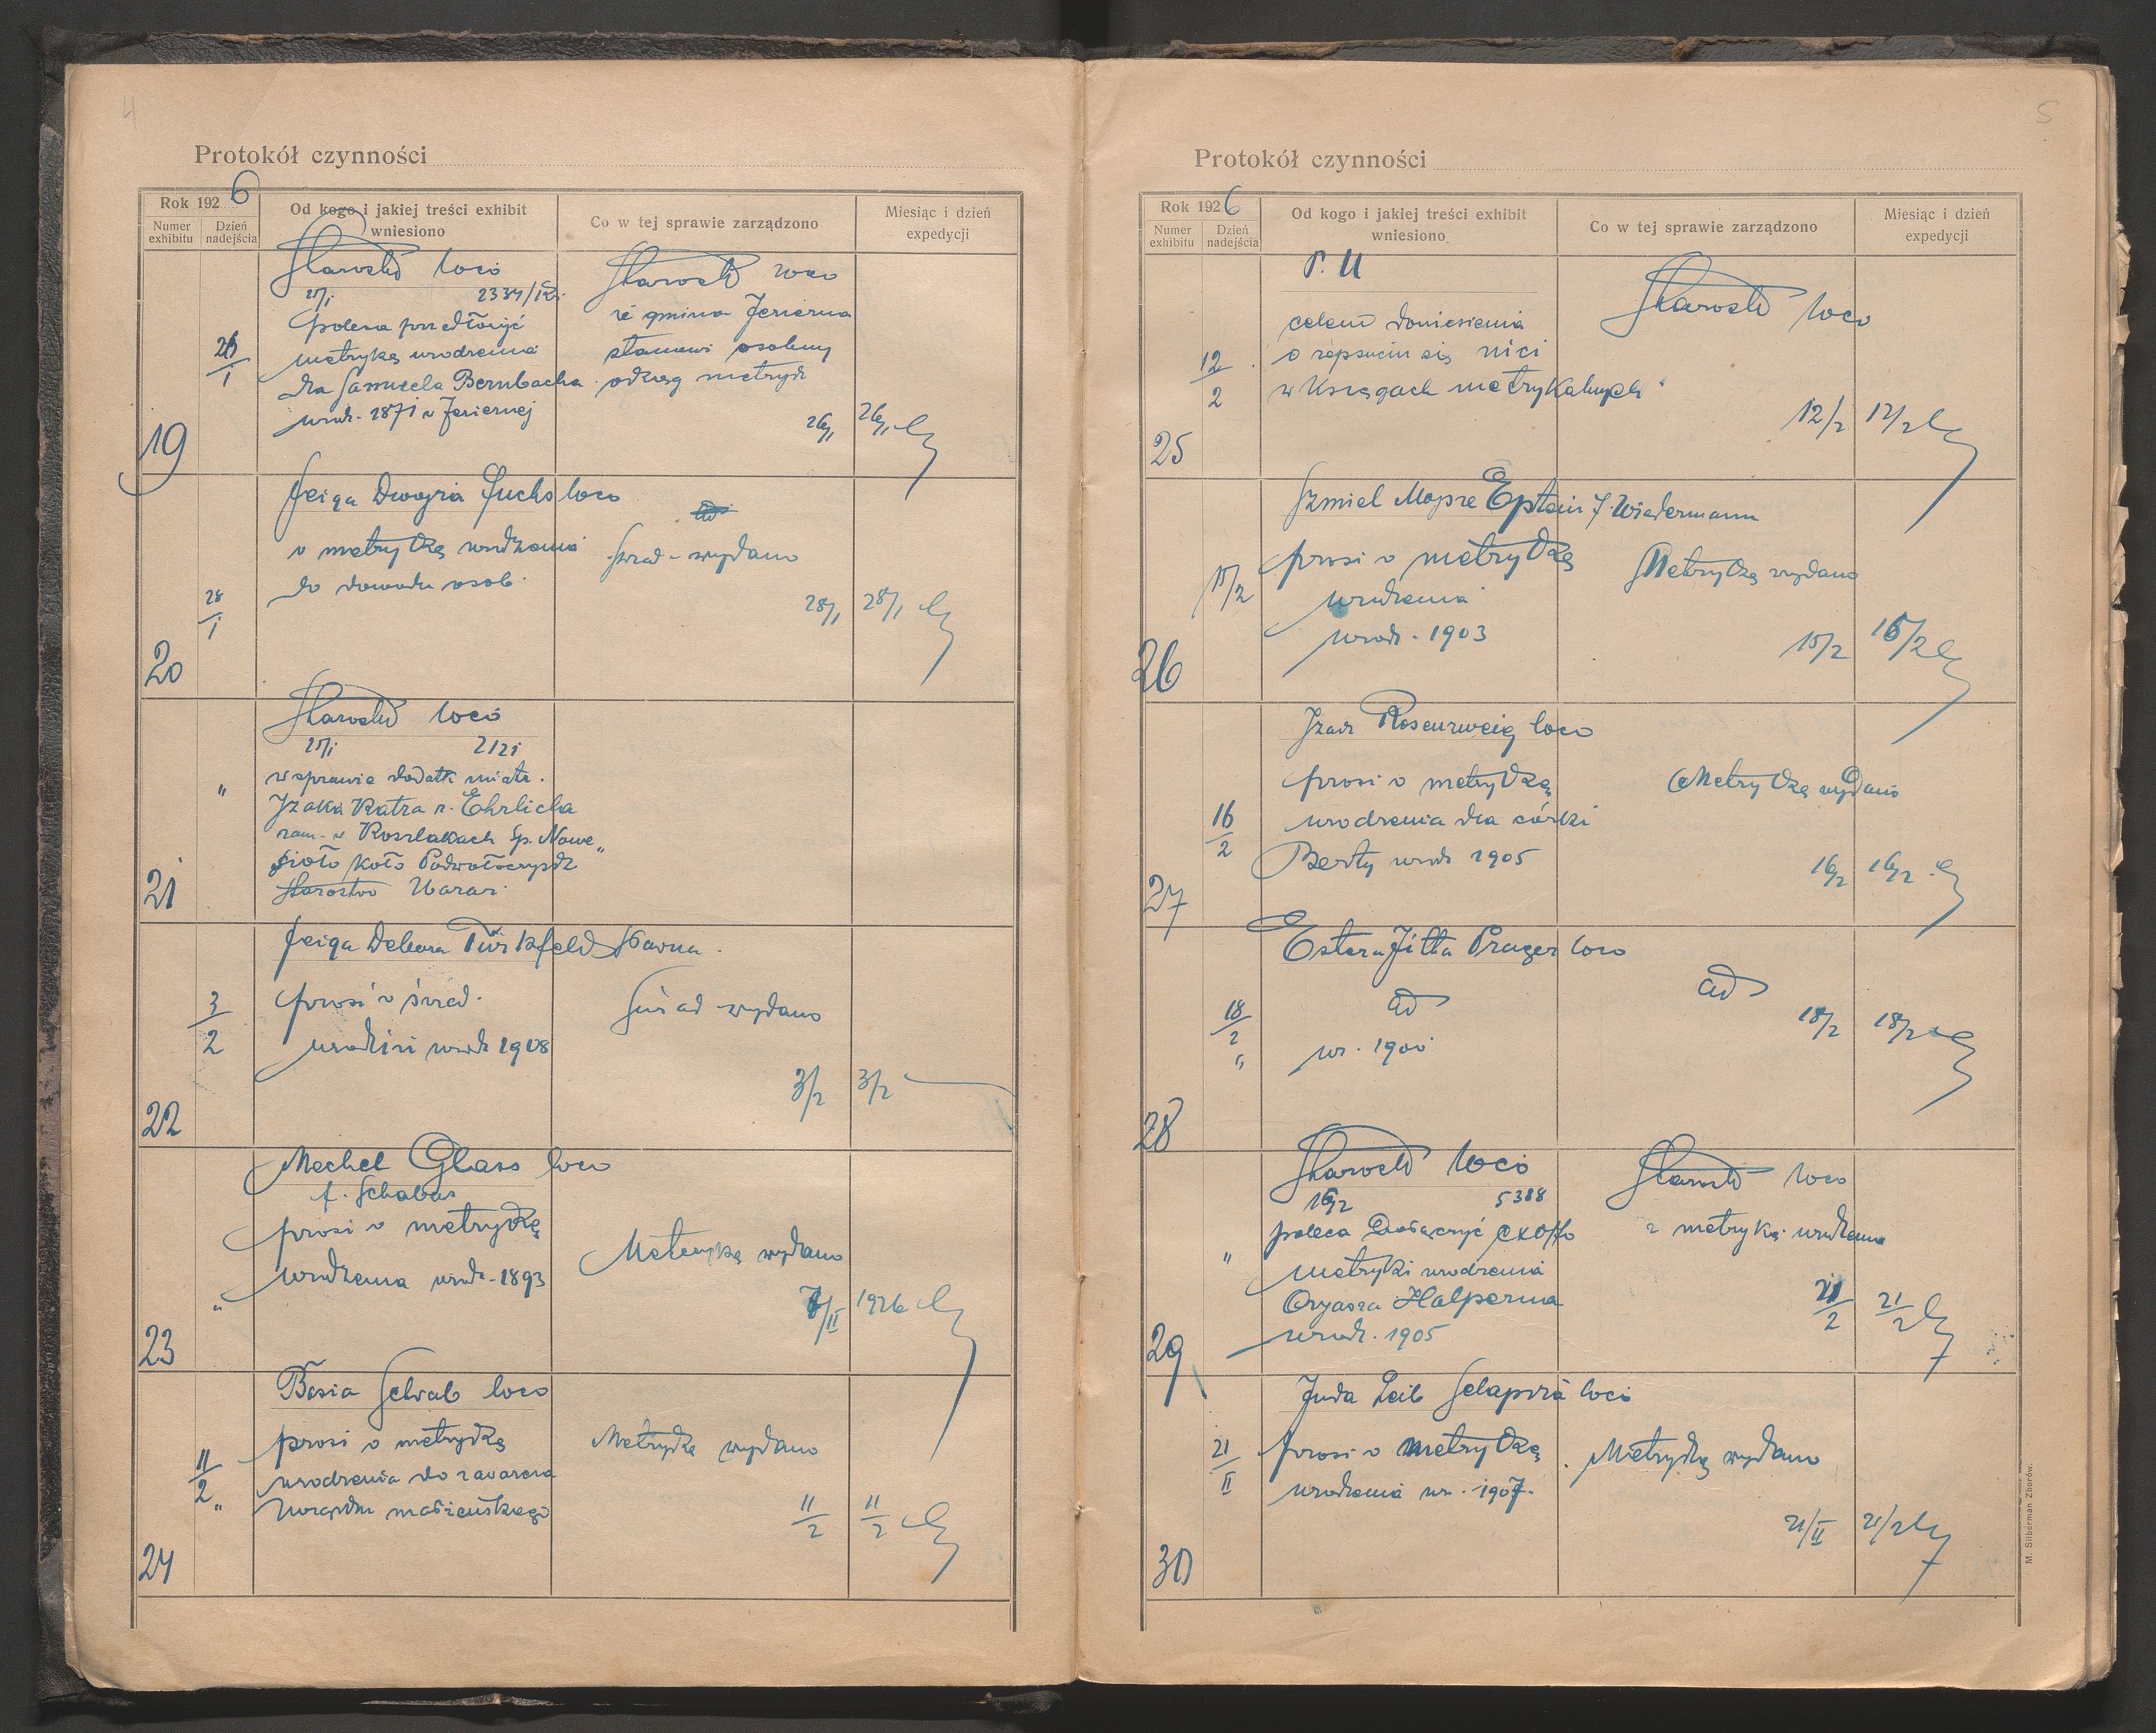 4
Protokół czynności
Rok 1926
Numer exhibitu
Dzień nadejścia
Od kogo i jakiej treści exhibit wniesiono
Co w tej sprawie zarządzono
Miesiąc i dzień expedycji
19
26/1
Starostwo loco
2334/
poleca przedłożyć
metrykę urodzenia
dla Samuela Bernbacha
urodz. 1871 w Jeziernej
Starostwo loco
że gmina Jezierna
stanowi osobny
okręg metryk
26/1
26/1
20
28/1
Feiga Dwojra Fuchs loco
o metrykę urodzenia
do dowodu osob.
ad
Świad. wydano
28/1
28/1
21
"
Starostwo loco
2121
w sprawie dodatk. metr.
Izaka Katza r. Ehrlicha
zam. w Koszlakach Sp. Nowe
sioło koło Podwołoczysk
Starostwo Zbaraż.
22
3/2
Feiga Debora Türkfeld
prosi o świad.
urodzin urodz 1908
Świad wydano
3/2
3/2
23
"
Mechel Glass loco
f. Schabas
prosi o metrykę
urodzenia urodz. 1893
Metrykę wydano
/II
1926
24
11/2
"
Basia Schwab loco
prosi o metrykę
urodzenia do zawarcia
związku małżeńskiego
Metrykę wydano
11/2
11/2
5
Protokół czynności
Rok 1926
Numer exhibitu
Dzień nadejścia
Od kogo i jakiej treści exhibit wniesiono
Co w tej sprawie zarządzono
Miesiąc i dzień expedycji
25
12/2
P. U
celem doniesienia
o zepsuciu się nici
w księgach metrykalnych
Starostwo loco
12/2
12/2
26
15/2
Szmiel Mojze Eptein f. Wiedermann
prosi o metrykę
urodzenia
urodz. 1903
Metrykę wydano
15/2
16/2
27
16/2
Izak Rosenzweig loco
prosi o metrykę
urodzenia dla córki
Berty urodz 1905
Metrykę wydano
16/2
16/2
28
18/2
"
Estera Jitta Prager loco
ad
ur. 1900
ad
18/2
18/2
29
"
Starostwo loco
16/2 5388
poleca Doręczyć exoffo
metryki urodzenia
Ozjasza Halperna
urodz. 1905
Starostwo loco
z metryką urodzenia
21/2
21/2
30
21/II
Juda Leib Schapira loco
prosi o metrykę
urodzenia ur. 1907.
Metrykę wydano
21/II
21/2
M. Silberman Zborów.